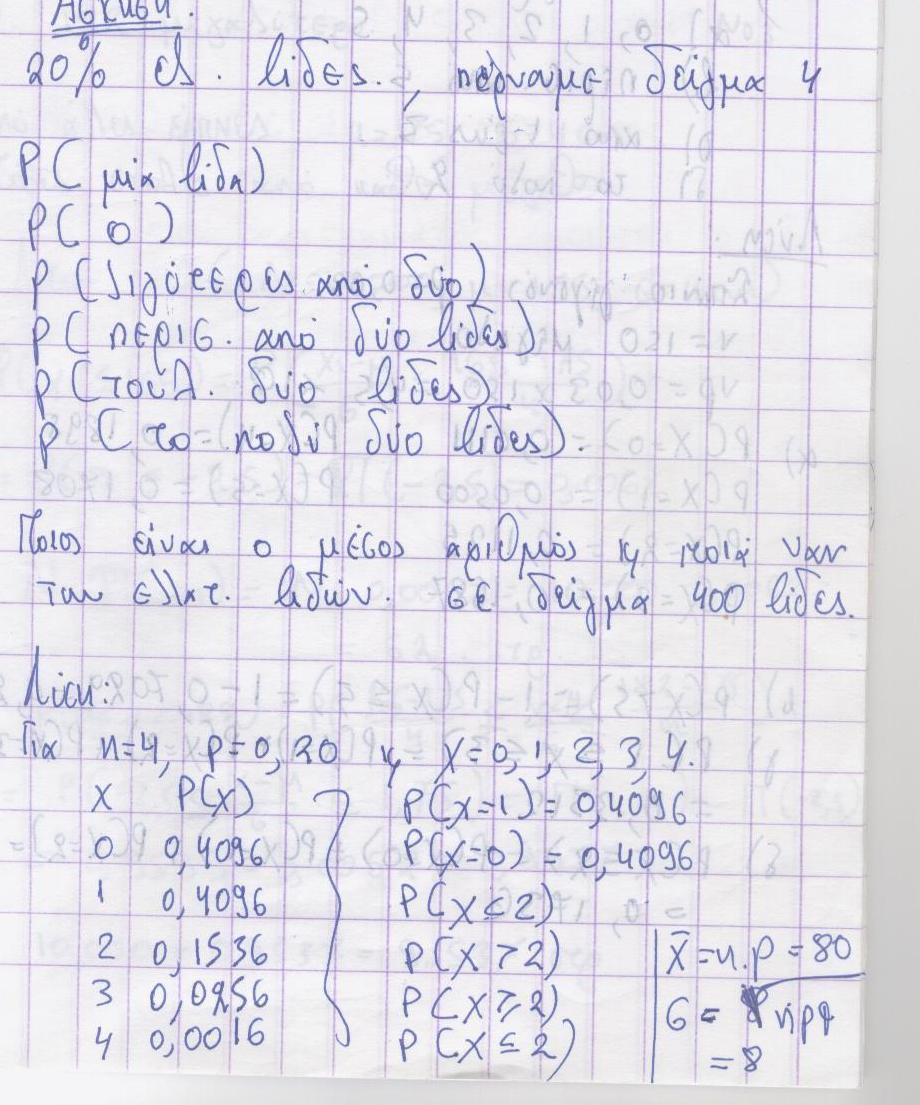 Άσκηση.
20% ελ. βίδες., πέρναμε δείγμα 4
P( μία βίδα)
P( 0 )
P( λιγότερες από δύο)
P( περισ. από δύο βίδες)
P(τουλ. δύο βίδες)
P( το πολύ δύο βίδες).
Ποιος είναι ο μέσος αριθμός κ ποιά
των ελλατ. βιδών. σε δείγμα 400 βίδες.
Λύση:
Για n=4, p=0,20 κ X=0,1,2,3,4.
X P(X) P(X=1)=0,4096
0 0,4096 P(X=0)=0,4096
1 0,4096 P(X<2)
2 0,1536 P(X>2) X̄=n.p=80
3 0,0256 P(X≥2) σ = √npq
4 0,0016 P(X≤2) =8